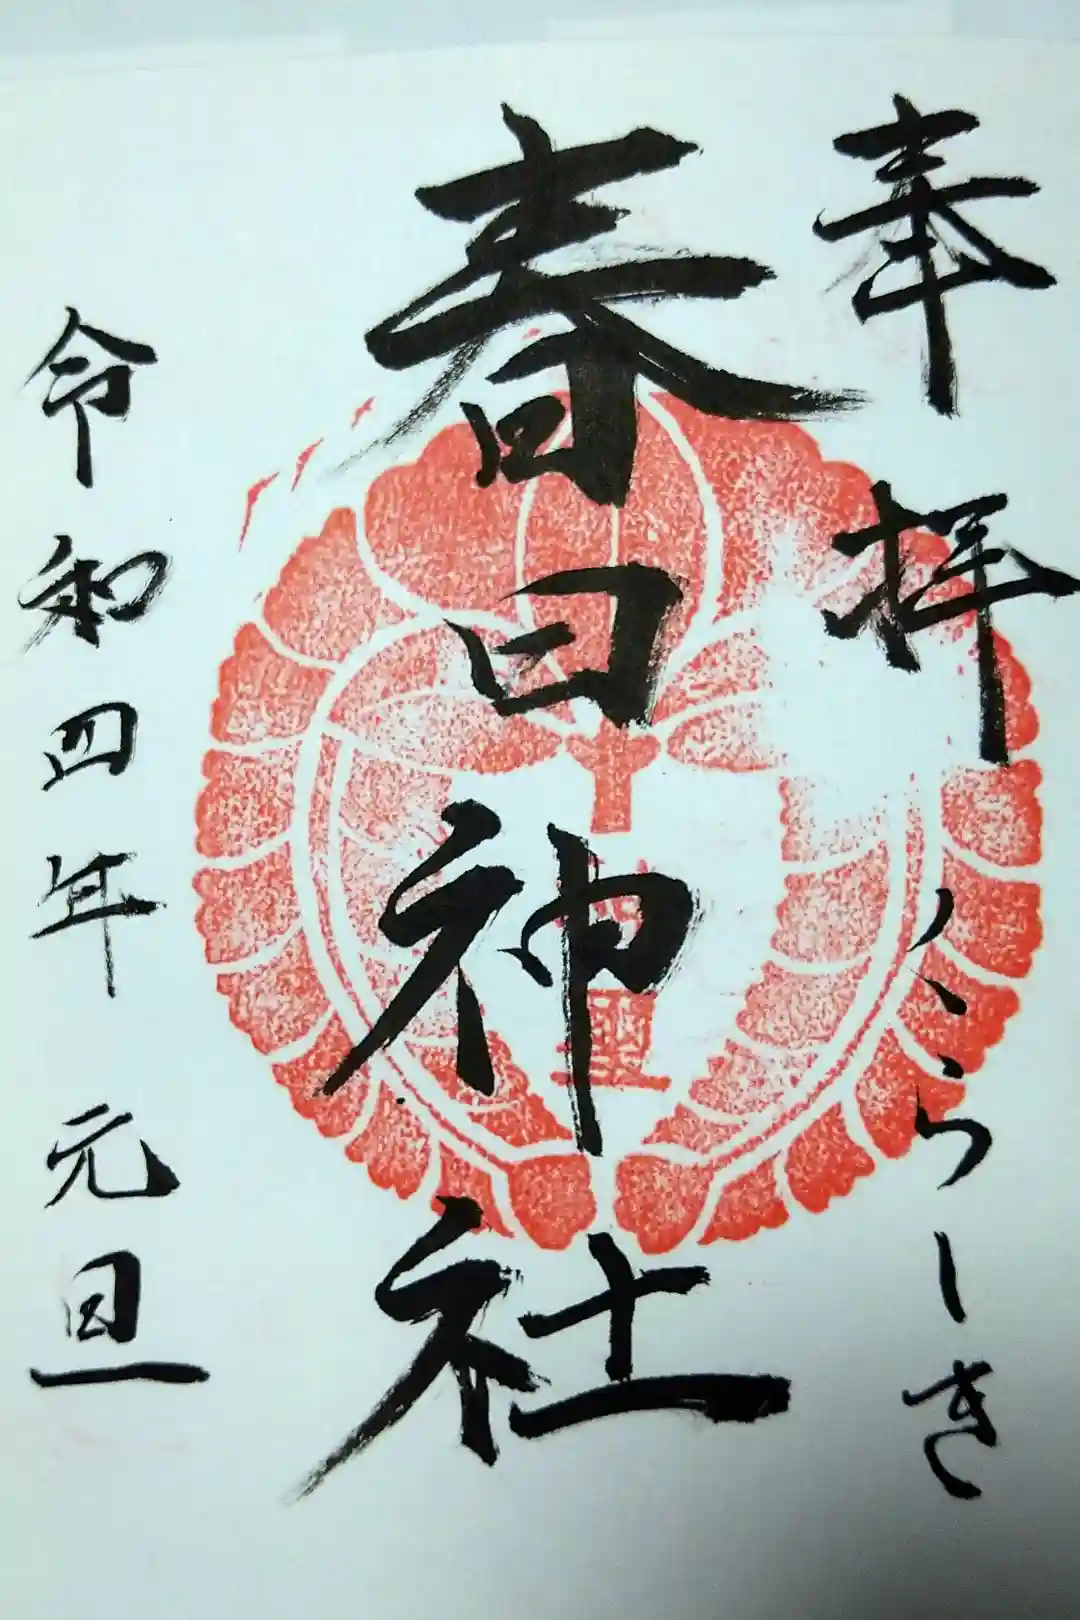 奉拝 くらしき
春日神社
令和四年元旦